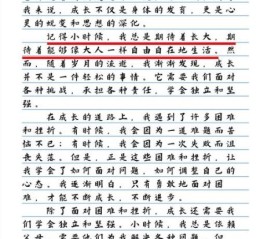 我来说，成长不仅是身体的发育，更是心
灵的蜕变和思想的深化。
记得小时候，我总是期待着长大，期
待着能够像大人一样自由自在地生活。然
而，随着岁月的流逝，我渐渐发现，成长
并不是一件轻松的事情。它需要我们面对
各种挑战，承担各种责任，学会独立和坚
强。
在成长的道路上，我遇到了许多困难
和挫折。有时候，我会因为一道难题而苦
恼不已；有时候，我会因为一次失败而沮
丧失落。但是，正是这些困难和挫折，让
我学会了如何面对问题，如何调整自己的
心态。我逐渐明白，只有勇敢地面对困
难，才能不断成长，不断进步。
除了面对困难和挫折，成长还需要我
们学会独立和坚强。小时候，我总是依赖